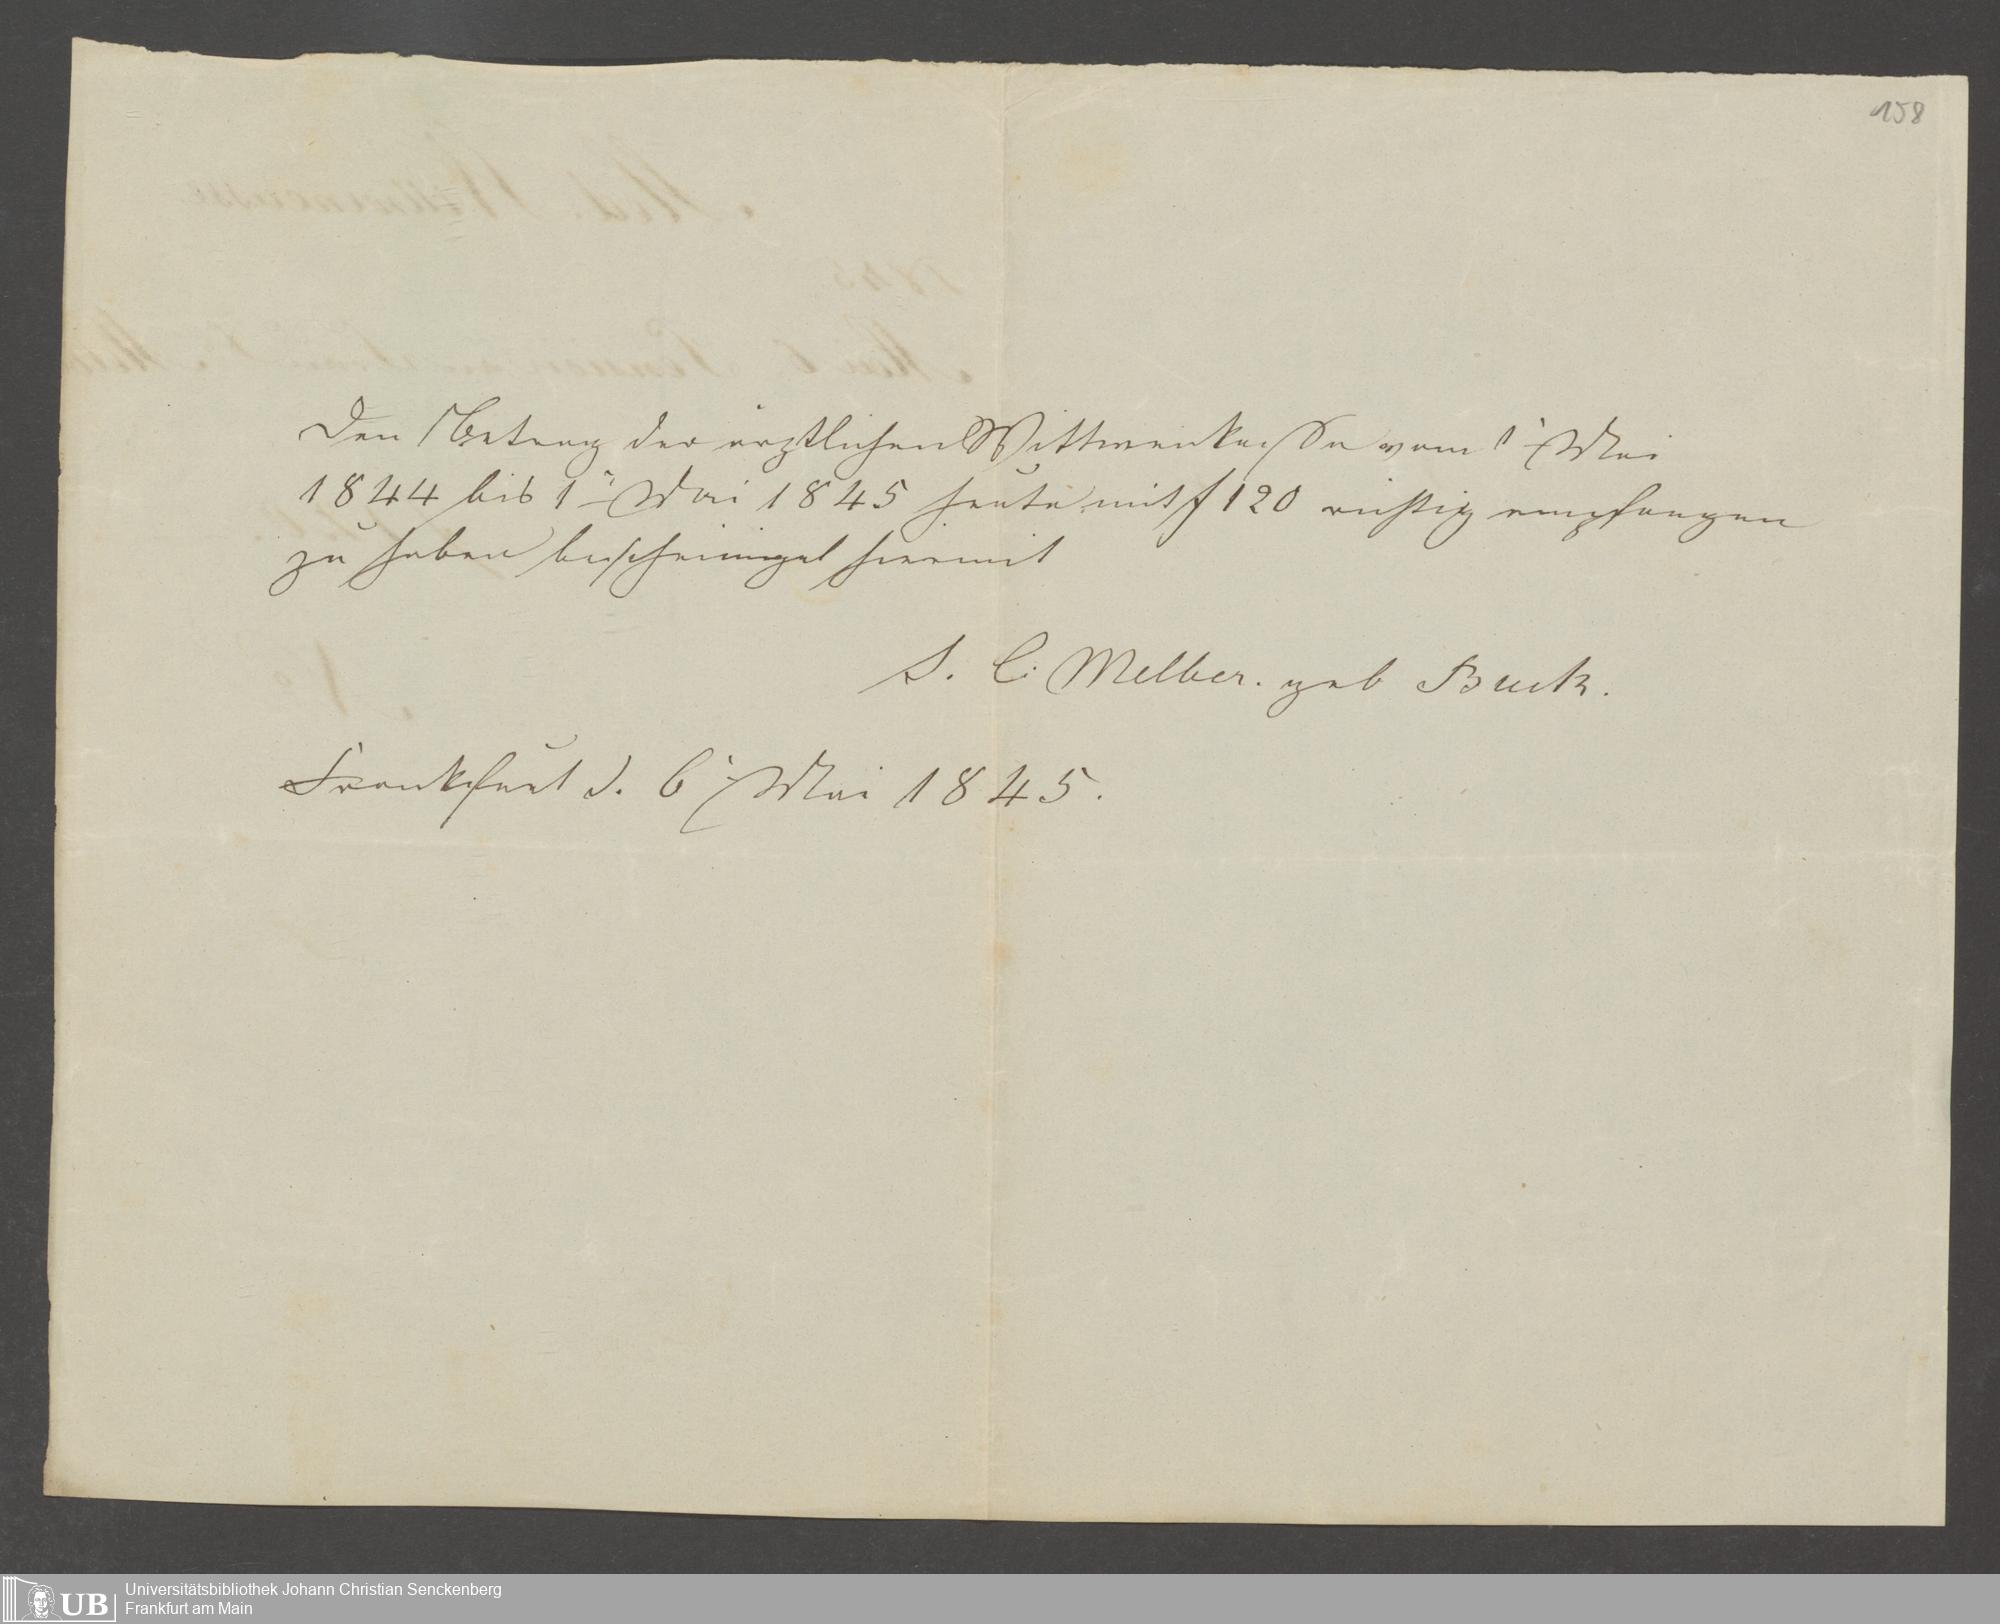 158
Den Betrag der ärztlichen Wittwenkasse vom 1 Mai
1844 bis 1 Mai 1845 heute mit f 120 richtig empfangen
zu haben bescheinigt hiermit
S. C. Melber. geb Buck.
Frankfurt d. 6 Mai 1845.
UB
Universitätsbibliothek Johann Christian Senckenberg
Frankfurt am Main